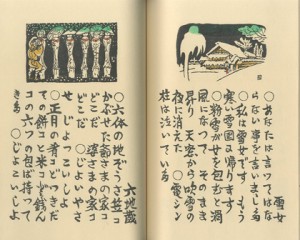 雪女
○あなたは言つてはな
らない事を言いましたね
○私は雪女です もう
寒い雪国へ帰ります
○粉雪が女を包むと渦
風になつて、そのまま
昇り 天窓から吹雪の
夜に消えた ○電シン
柱は泣いている
六地蔵
○六体の地ぞうさ笠コ
かぶせた爺さまの家コ
どこだ 婆さまの家コ
どこだ ○じよいやさ
せ じよこいしよ
○正月の肴コ
ての餅コ 米コと銭ん
コの六つの包ば持つて
きた ○じよこいしよ